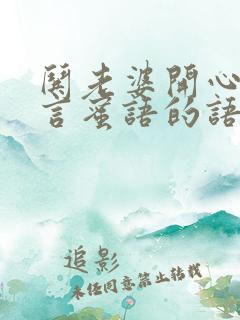 鬨老婆開心
言蜜語的語
追影
未經同意禁止转载